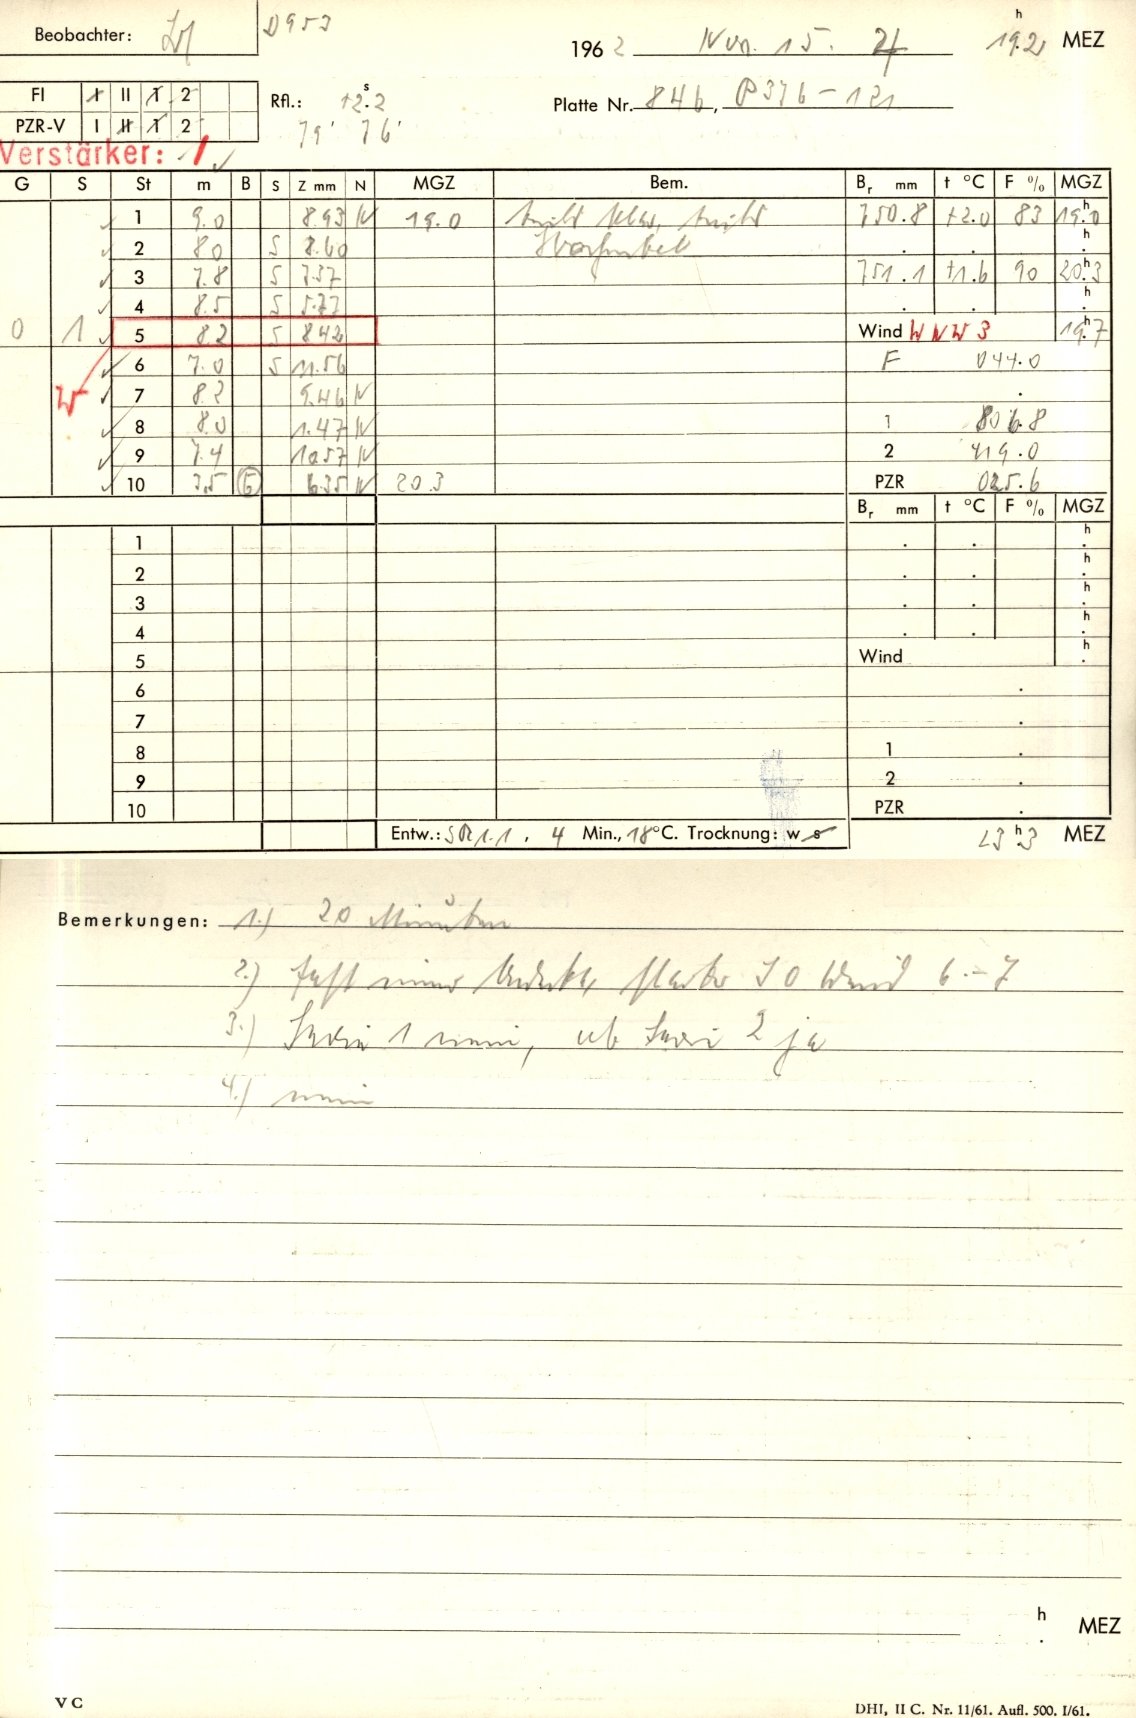 Beobachter: D953
1962 Nov. 15. 19h.2 MEZ
FI I II 1 2
PZR-V I II 1 2
Rfl.: +2s.2
79' 76'
Platte Nr. 846, P376-121
Verstärker: 1
G S St m B S Z mm N MGZ Bem. Br mm t °C F % MGZ
1 9.0 8.93 N 19.0 750.8 +2.0 83 19h.0
2 8.0 S 8.60 . . h.
3 7.8 S 7.37 751.1 +1.6 90 20h.3
4 8.5 S 5.77 . . h.
0 1 5 8.2 S 8.42 Wind WNW 3 19h.7
6 7.0 S 11.56 F 044.0
7 8.2 9.46 N .
8 8.0 1.47 N 1 806.8
9 7.4 10.57 N 2 419.0
10 3.5 6.35 N 20.3 PZR 025.6
Br mm t °C F % MGZ
1 . . h.
2 . . h.
3 . . h.
4 . . h.
5 Wind h.
6 .
7 .
8 1 .
9 2 .
10 PZR .
Entw.: 1.1, 4 Min., 18°C. Trocknung: w s 23h.3 MEZ
Bemerkungen: 1.) 20 Minuten
2.) Wind 6-7
3.) Serie 1 nein, ab Serie 2 ja
4.) nein
h. MEZ
V C
DHI, II C. Nr. 11/61. Aufl. 500. I/61.